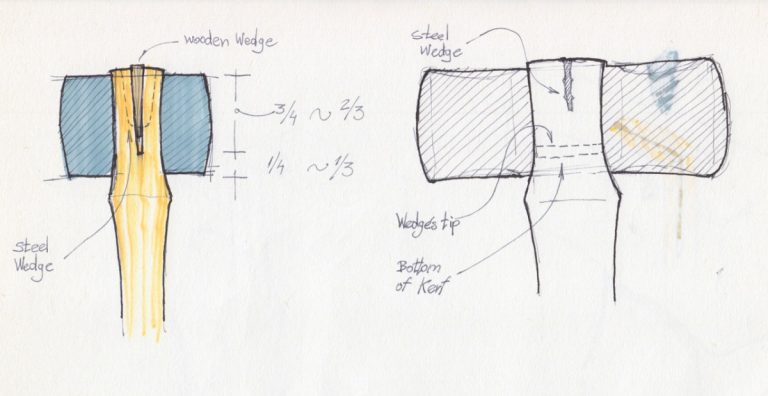 wooden Wedge
3/4 ~ 2/3
1/4 ~ 1/3
Steel
Wedge
Steel
Wedge
Wedge's tip
Bottom
of Kerf